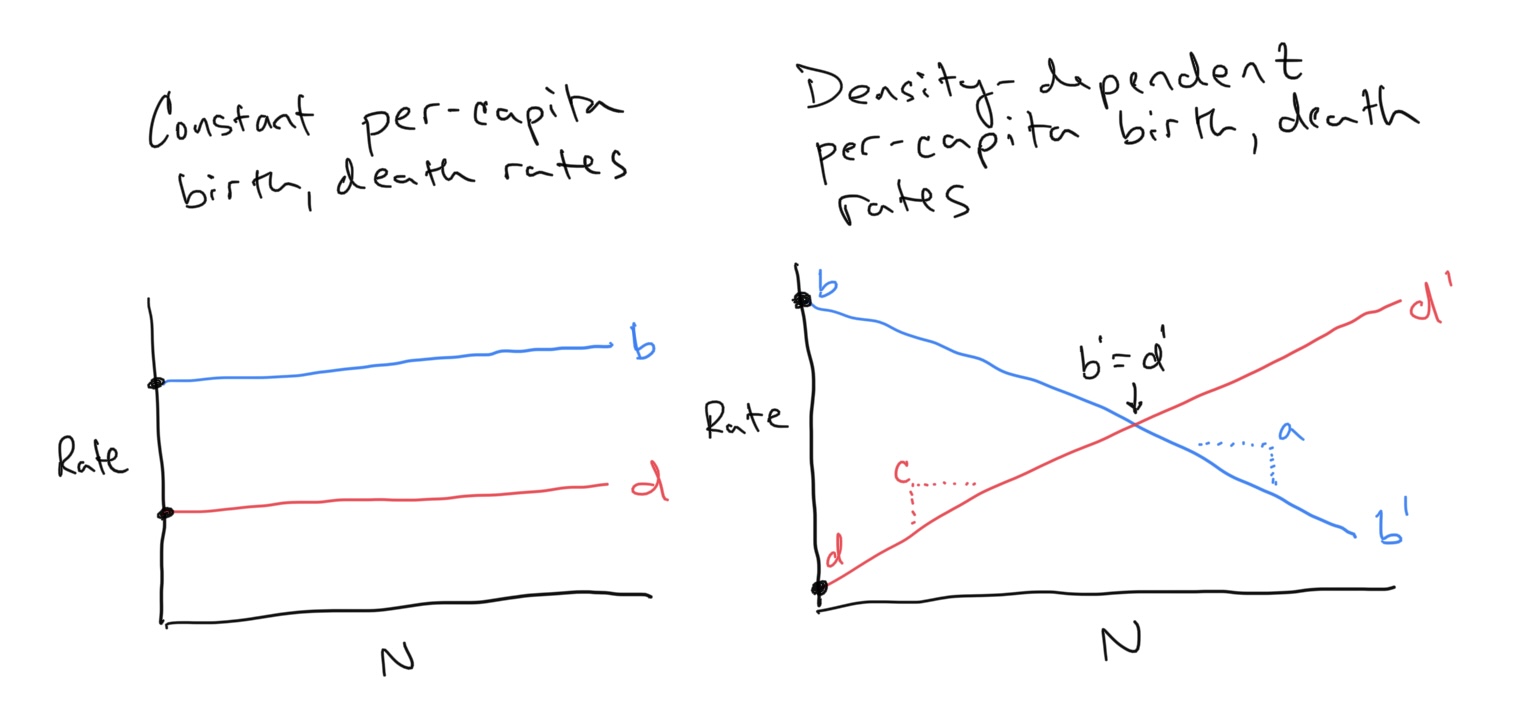 Constant per-capita
birth, death rates
b
Rate
d
N
Density-dependent
per-capita birth, death
rates
b
d'
b' = d'
Rate
a
c
b'
d
N